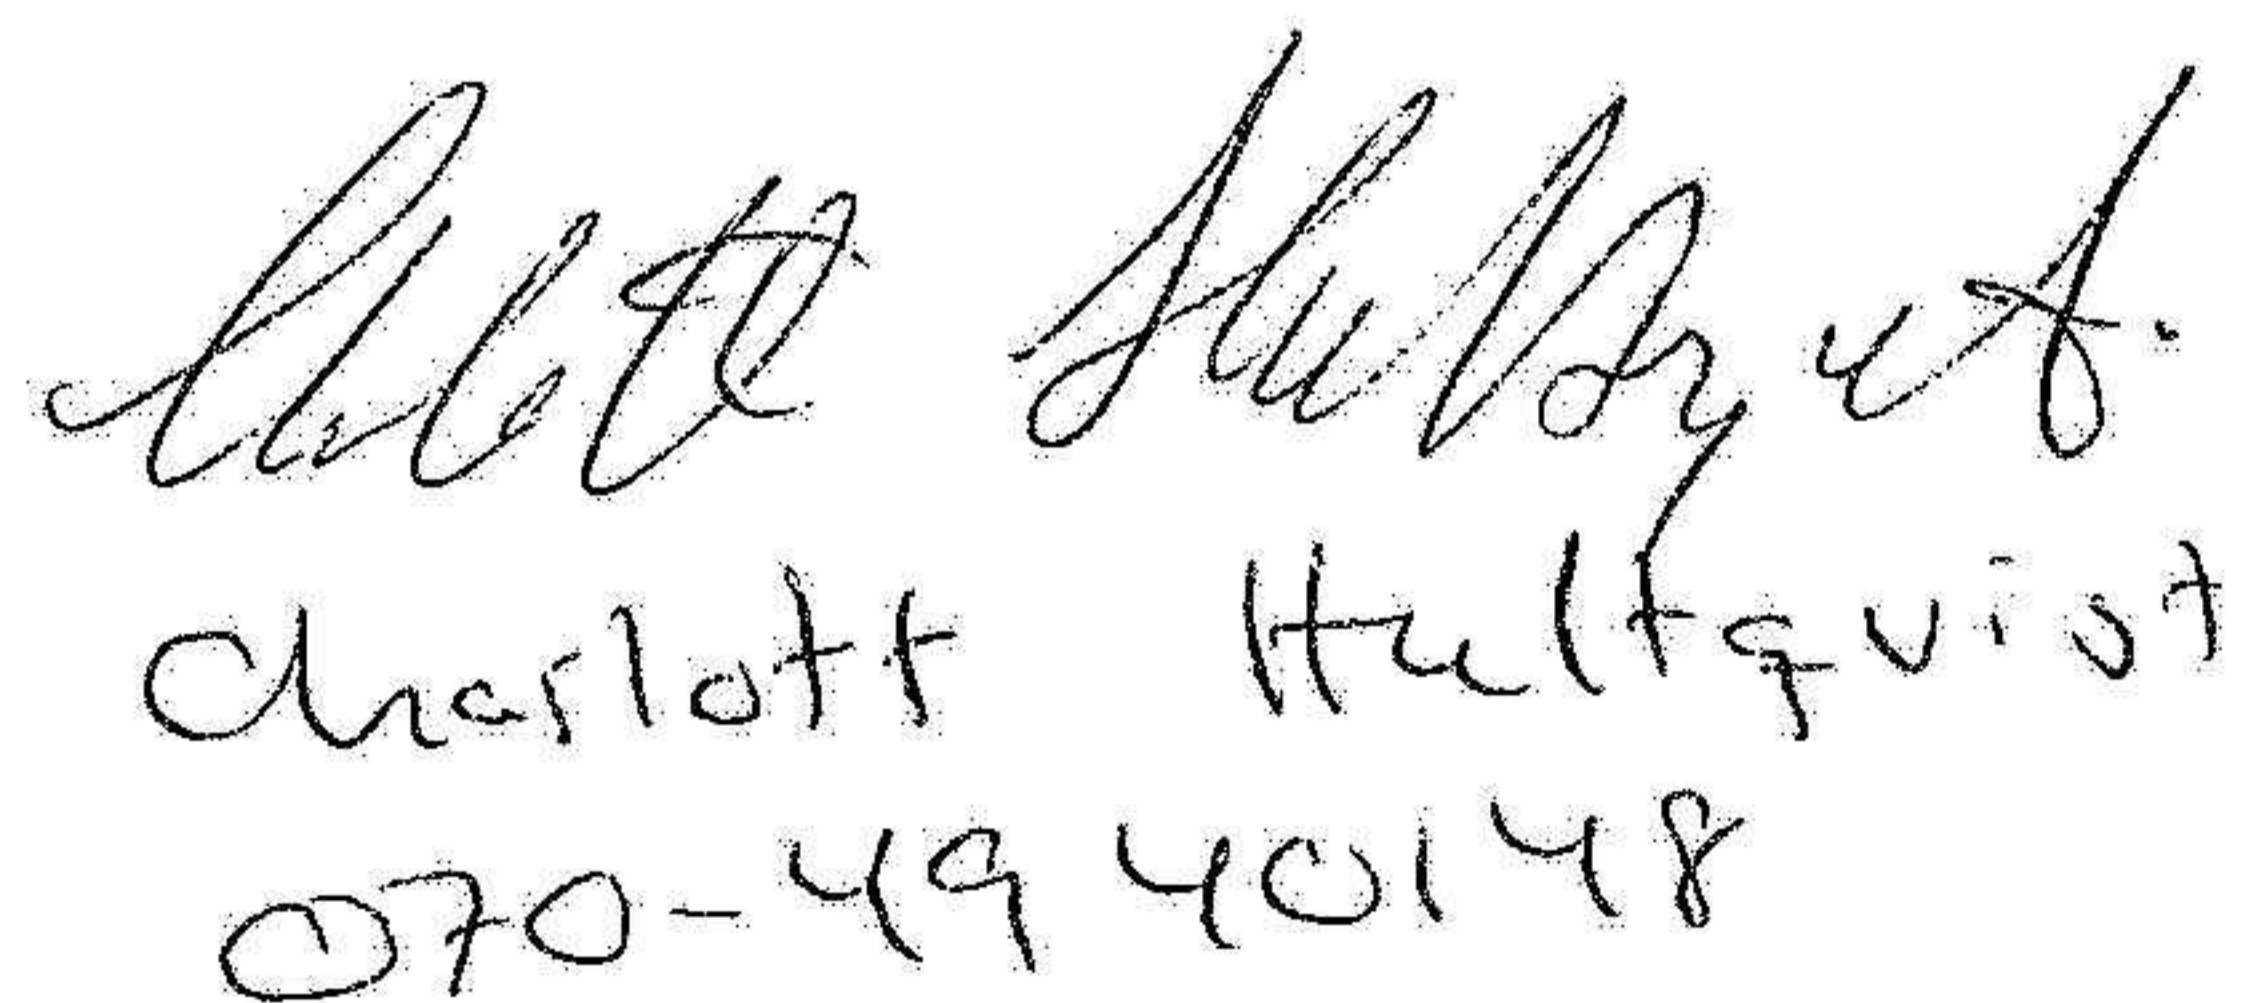 Charlott Hultqvist
Charlott Hultqvist
070-49 40148